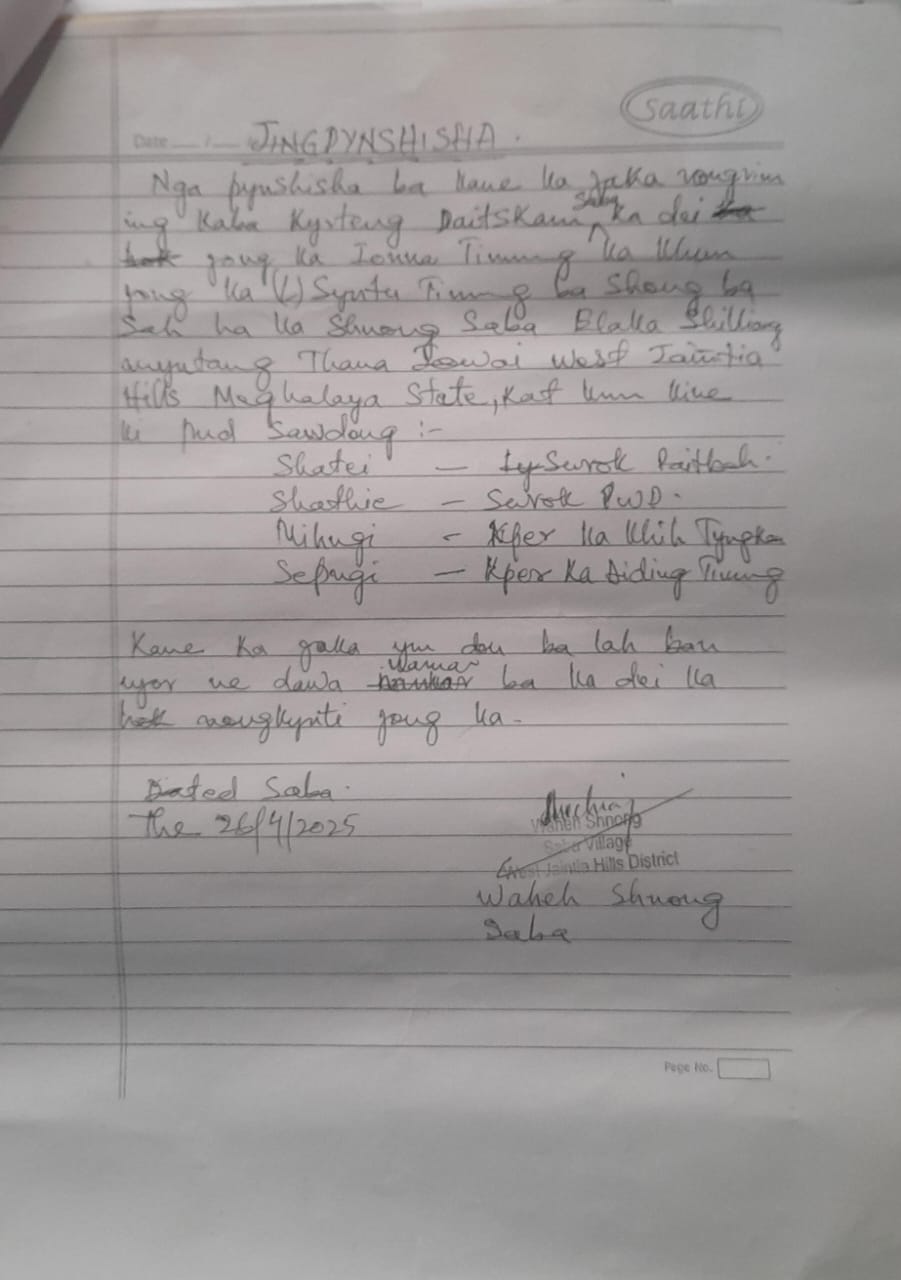 saathi
Date ___/___ JINGPYNSHISHA.
Nga pynshisha ba kane ka Jaka nongrim
ing kaba kyrteng Daitskam Saba ka dei
jong ka Ionna Timung ka khun
jong ka (L) Syntu Timung ba shong ba
sah ha ka Shnong Saba Elaka Shilliang
amyntang Thana Jowai West Jaintia
Hills Meghalaya State, Kat kum kine
ki pud sawdong :-
Shatei — Surok Paitbah.
Shathie — Surok PWD.
Mihngi — Kper ka Khih Tyngkan
Sepngi — Kper Ka Aiding Timung
Kane ka jaka ym don ba lah ban
ne dawa namar ba ka dei ka
hok nongkynti jong ka.
Dated Saba.
The 26/4/2025
Waheh Shnong
Saba Village
West Jaintia Hills District
Waheh Shnong
Saba
Page No.